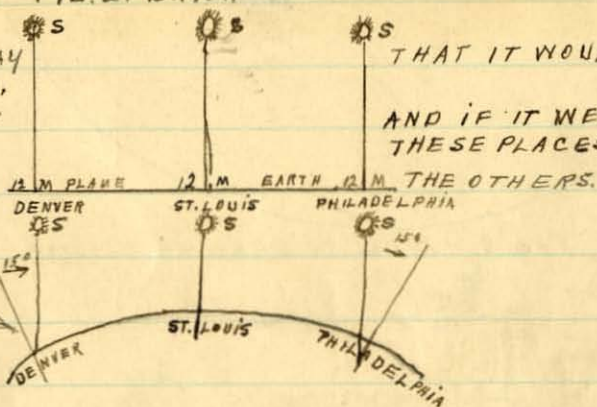 S S S
THAT IT WOU
AND iF IT WE
THESE PLACES
12 M PLANE 12 M EARTH 12 M THE OTHERS.
DENVER ST. LOUIS PHILADELPHIA
S S S
15° 15°
ST. LOUIS
DENVER PHILADELPHIA